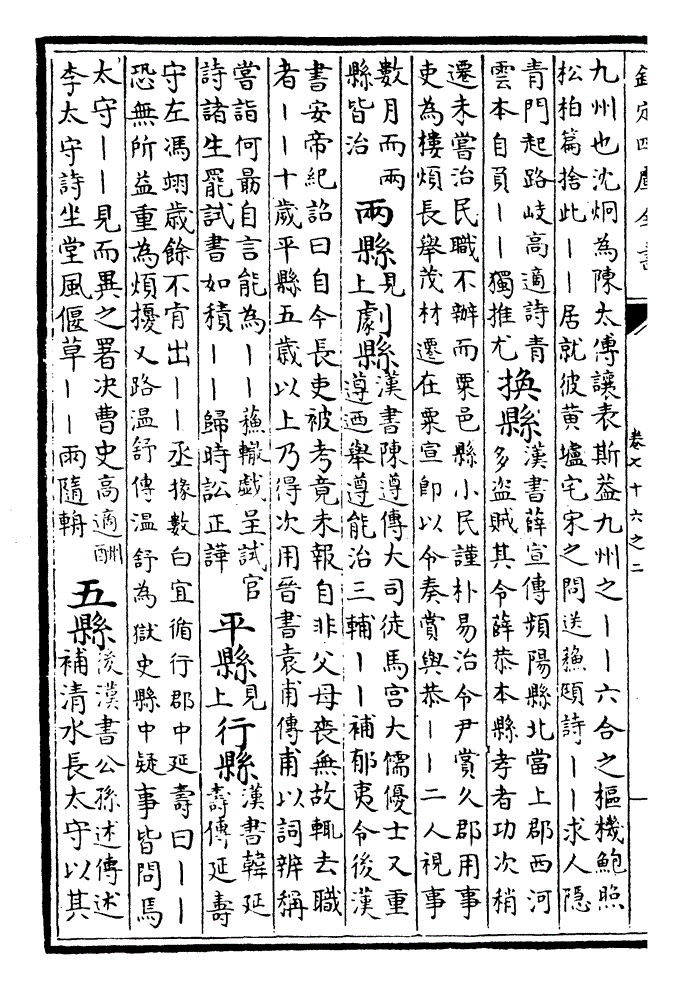 欽定四庫全書
卷七十六之二
九州也沈炯為陳太傅讓表斯葢九州之丨丨六合之樞機鮑照
松柏篇捨此丨丨居就彼黄壚宅宋之問送蘓頲詩丨丨求人隠
青門起路岐高適詩青
雲本自負丨丨獨推尤
換縣
漢書薛宣傳頻陽縣北當上郡西河
多盗賊其令薛恭本縣孝者功次稍
遷未嘗治民職不辦而粟邑縣小民謹朴易治令尹賞久郡用事
吏為樓煩長舉茂材遷在粟宣即以令奏賞與恭丨丨二人視事
數月而兩
縣皆治
兩縣
見
上
劇縣
漢書陳遵傳大司徒馬宫大儒優士又重
遵西舉遵能治三輔丨丨補郁夷令後漢
書安帝紀詔曰自今長吏被考竟未報自非父母喪無故輒去職
者丨丨十歳平縣五歳以上乃得次用晉書袁甫傳甫以詞辨稱
嘗詣何朂自言能為丨丨蘓轍戲呈試官
詩諸生罷試書如積丨丨歸時訟正譁
平縣
見
上
行縣
漢書韓延
壽傳延壽
守左馮翊歳餘不肯出丨丨丞掾數白宜循行郡中延壽曰丨丨
恐無所益重為煩擾又路温舒傳温舒為獄史縣中疑事皆問焉
太守丨丨見而異之署决曹史高適酬
李太守詩坐堂風偃草丨丨雨隨輈
五縣
後漢書公孫述傳述
補清水長太守以其